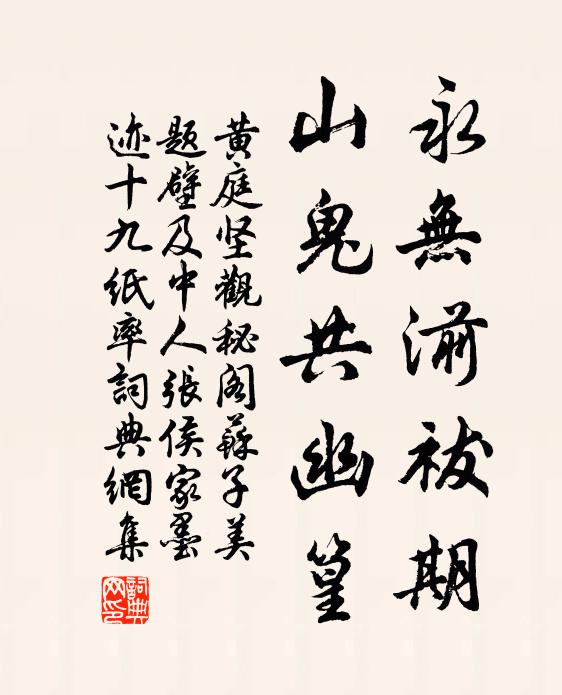 永無湔祓期
山鬼共幽篁
黄庭坚觀秘阁蘇子美
题壁及中人張侯家墨
迹十九纸率詞典網集
詞典网印